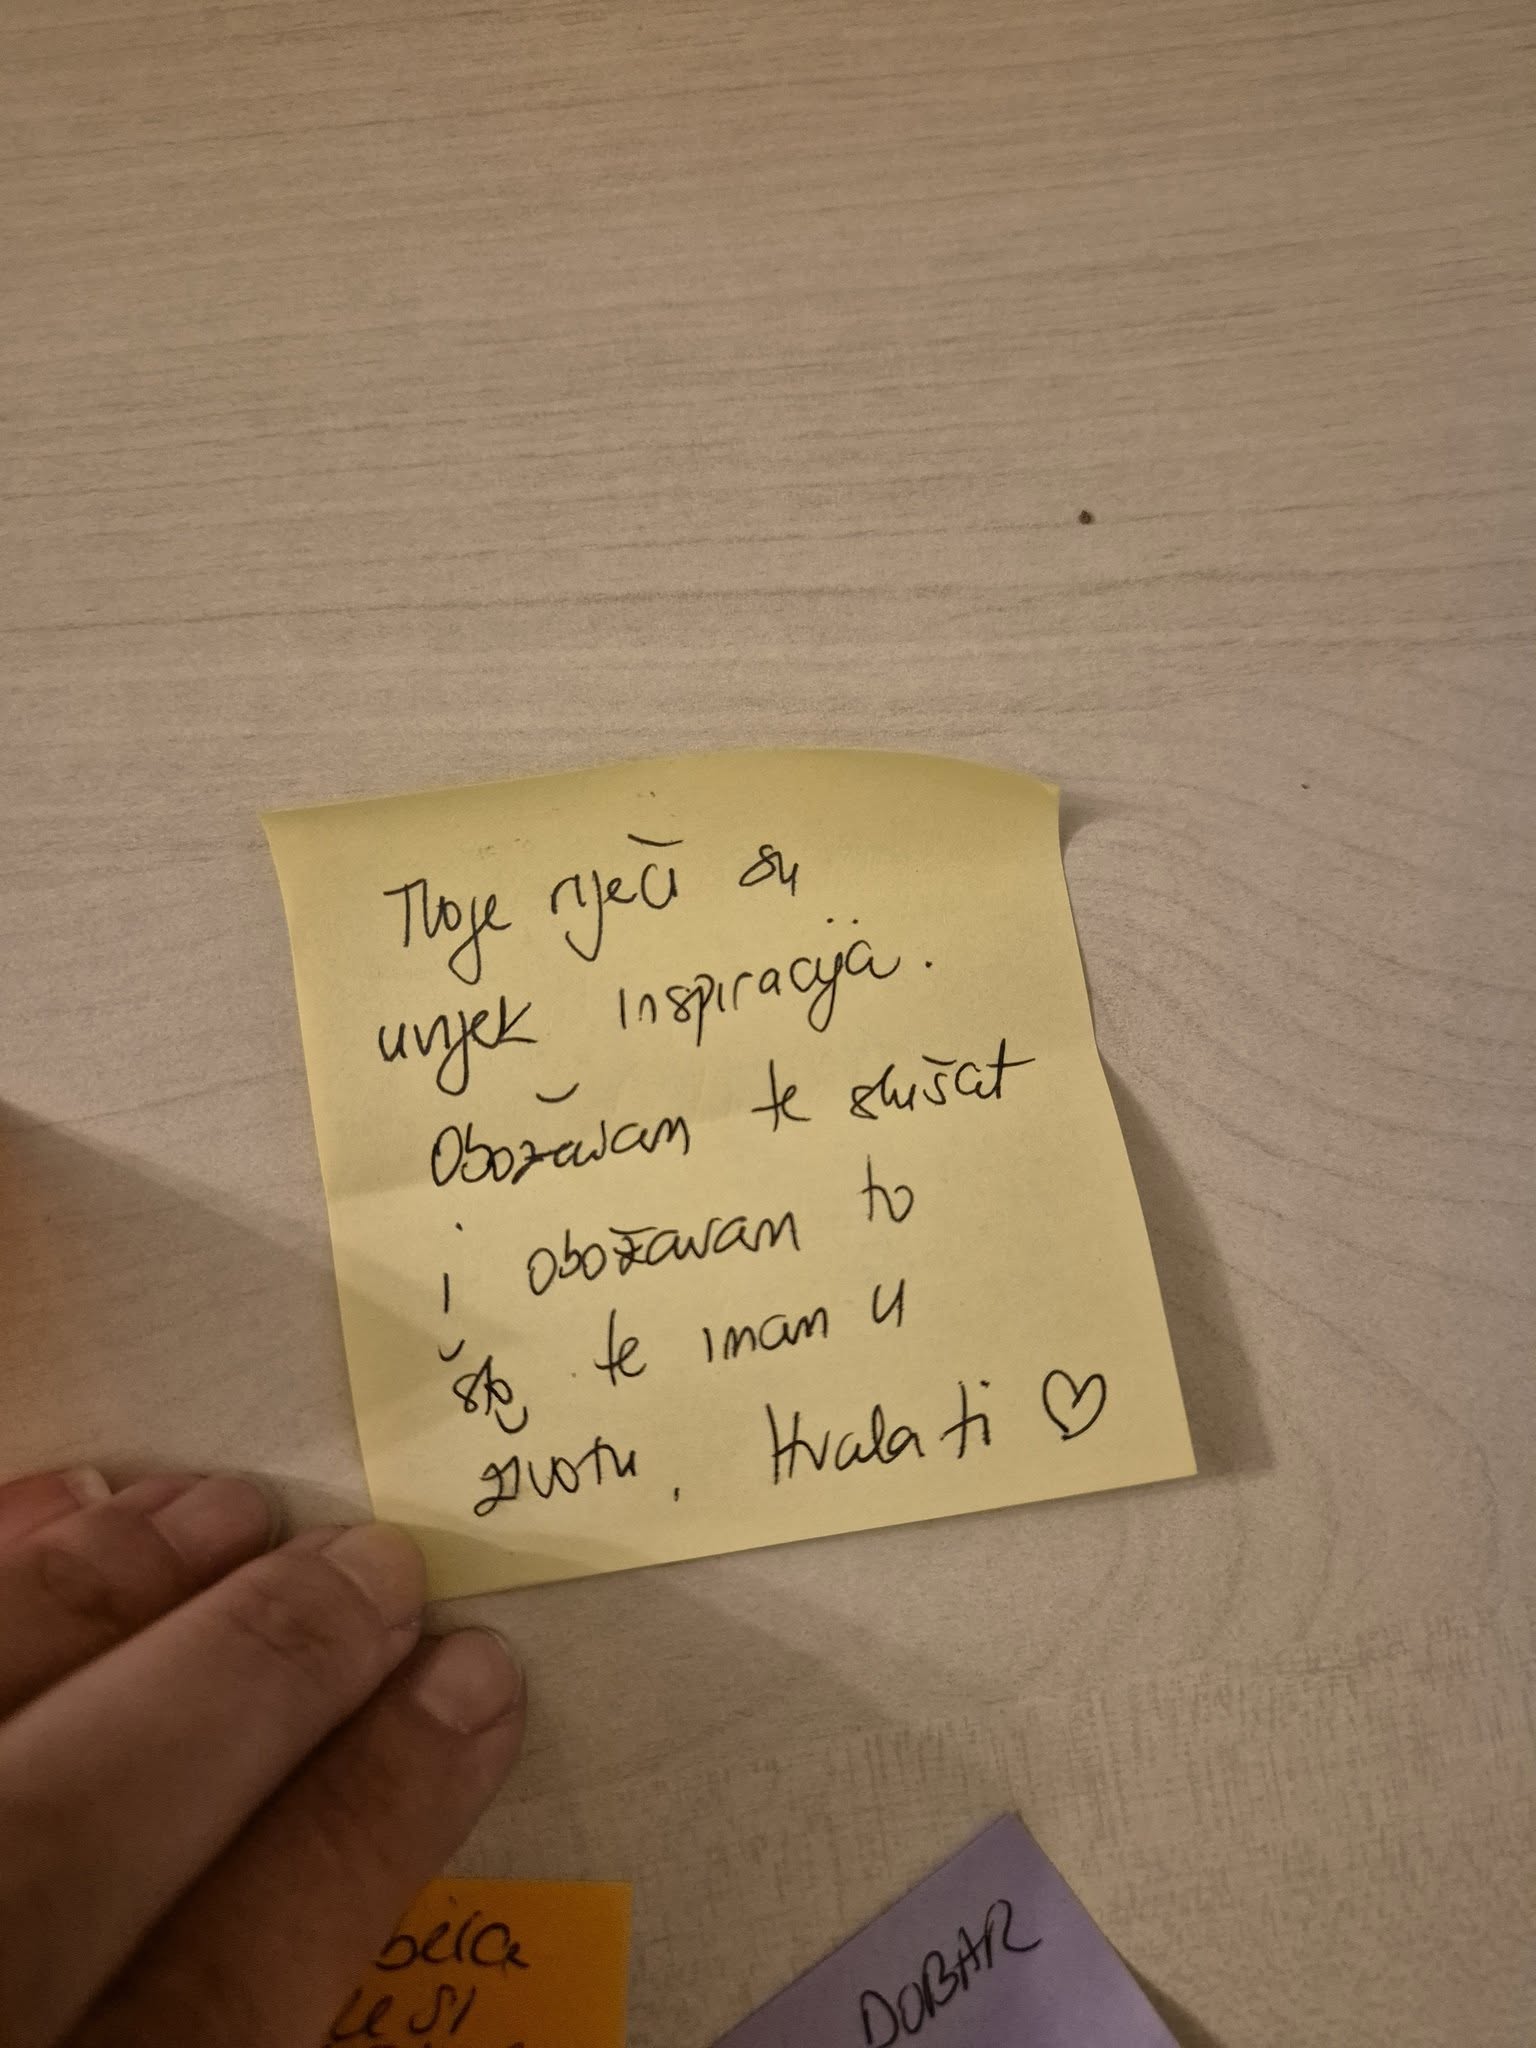 Tvoje riječi su
uvijek inspiracija.
Obožavam te slušat
i obožavam to
što te imam u
životu. Hvala ti ♡
DOBAR